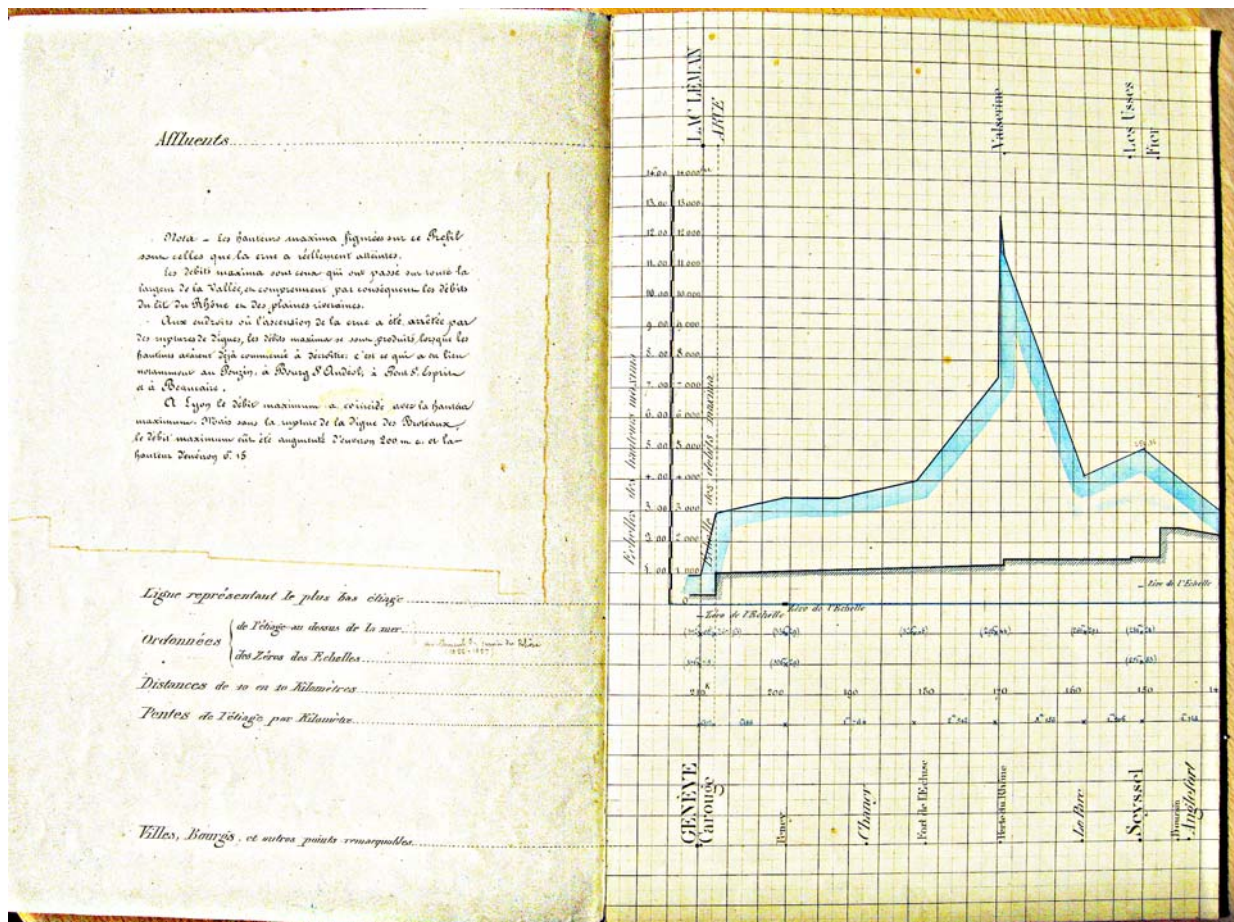 Affluents
Nota - Les hauteurs maxima figurées sur ce Profil
sont celles que la crue a réellement atteintes.
Les débits maxima sont ceux qui ont passé sur toute la
largeur de la Vallée, et comprennent par conséquent les débits
du lit du Rhône et des plaines riveraines.
Aux endroits où l'ascension de la crue a été arrêtée par
des ruptures de digues, les débits maxima se sont produits lorsque les
hauteurs avaient déjà commencé à décroître; c'est ce qui a eu lieu
notamment au Pouzin, à Bourg St Andéol, à Pont St Esprit
et à Beaucaire.
A Lyon le débit maximum a coïncidé avec la hauteur
maximum. Mais sans la rupture de la digue des Broteaux,
le débit maximum eût été augmenté d'environ 200 m. c. et la
hauteur d'environ 0. 15
Ligne représentant le plus bas étiage
Ordonnées
de l'étiage au dessus de la mer
des Zéros des Echelles
Distances de 10 en 10 Kilomètres
Pentes de l'étiage par Kilomètre
Villes, Bourgs, et autres points remarquables
LAC LEMAN
ARVE
Valserine
Les Usses
Fier
14.00 14.000
13.00 13.000
12.00 12.000
11.00 11.000
10.00 10.000
9.00 9.000
8.00 8.000
7.00 7.000
6.00 6.000
5.00 5.000
4.00 4.000
3.00 3.000
2.00 2.000
1.00 1.000
0
Echelles des hauteurs maxima
Echelle des débits maxima
Zéro de l'Echelle
Zéro de l'Echelle
Zéro de l'Echelle
210 K 200 190 180 170 160 150
GENÈVE
Carouge
Peney
Chancy
Fort de l'Ecluse
Perte du Rhône
Le Parc
Seyssel
Anglefort